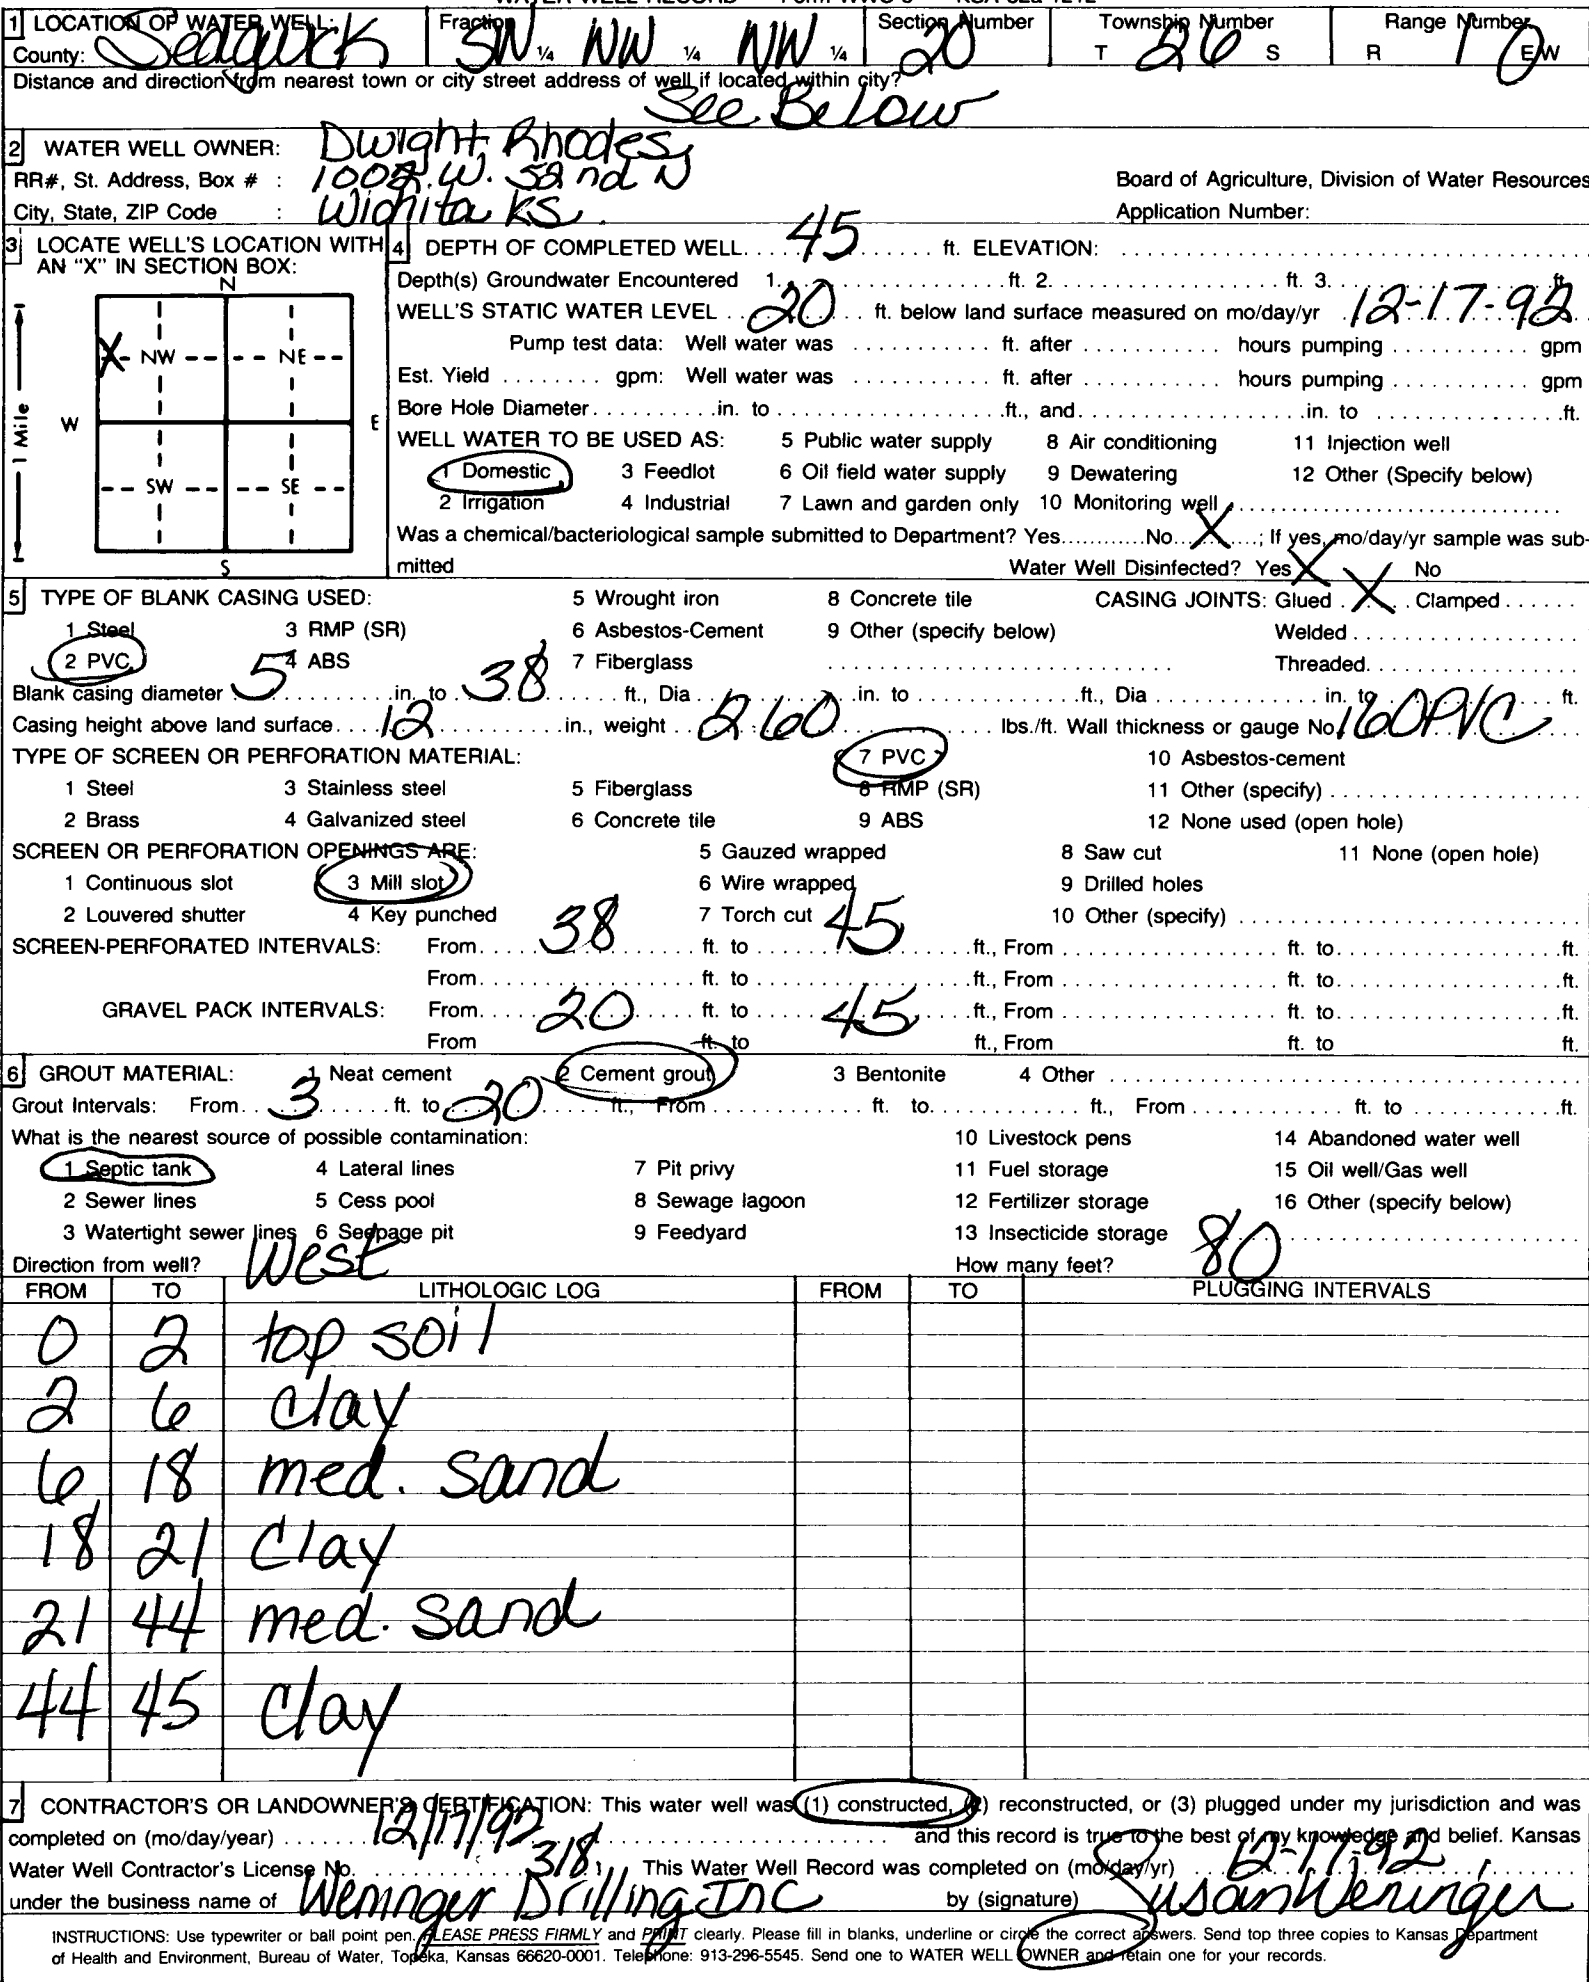 WATER WELL RECORD Form WWC-5 KSA 82a-1212
1 LOCATION OF WATER WELL: Fraction Section Number Township Number Range Number
County: Sedgwick SW ¼ NW ¼ NW ¼ 20 T 26 S R 1 E/W
Distance and direction from nearest town or city street address of well if located within city?
See Below
2 WATER WELL OWNER: Dwight Rhodes
RR#, St. Address, Box # : 1002 W. 52nd N Board of Agriculture, Division of Water Resources
City, State, ZIP Code : Wichita KS. Application Number:
3 LOCATE WELL'S LOCATION WITH AN "X" IN SECTION BOX:
N
X NW NE
W E
SW SE
S
1 Mile
4 DEPTH OF COMPLETED WELL 45 ft. ELEVATION:
Depth(s) Groundwater Encountered 1. ft. 2. ft. 3. ft.
WELL'S STATIC WATER LEVEL 20 ft. below land surface measured on mo/day/yr 12-17-92
Pump test data: Well water was ft. after hours pumping gpm
Est. Yield gpm: Well water was ft. after hours pumping gpm
Bore Hole Diameter in. to ft., and in. to ft.
WELL WATER TO BE USED AS: 5 Public water supply 8 Air conditioning 11 Injection well
1 Domestic 3 Feedlot 6 Oil field water supply 9 Dewatering 12 Other (Specify below)
2 Irrigation 4 Industrial 7 Lawn and garden only 10 Monitoring well
Was a chemical/bacteriological sample submitted to Department? Yes No X ; If yes, mo/day/yr sample was sub-
mitted Water Well Disinfected? Yes X No
5 TYPE OF BLANK CASING USED: 5 Wrought iron 8 Concrete tile CASING JOINTS: Glued X Clamped
1 Steel 3 RMP (SR) 6 Asbestos-Cement 9 Other (specify below) Welded
2 PVC 4 ABS 7 Fiberglass Threaded
Blank casing diameter 5 in. to 38 ft., Dia in. to ft., Dia in. to ft.
Casing height above land surface 12 in., weight 2.60 lbs./ft. Wall thickness or gauge No. 160 PVC
TYPE OF SCREEN OR PERFORATION MATERIAL: 7 PVC 10 Asbestos-cement
1 Steel 3 Stainless steel 5 Fiberglass 8 RMP (SR) 11 Other (specify)
2 Brass 4 Galvanized steel 6 Concrete tile 9 ABS 12 None used (open hole)
SCREEN OR PERFORATION OPENINGS ARE: 5 Gauzed wrapped 8 Saw cut 11 None (open hole)
1 Continuous slot 3 Mill slot 6 Wire wrapped 9 Drilled holes
2 Louvered shutter 4 Key punched 7 Torch cut 10 Other (specify)
SCREEN-PERFORATED INTERVALS: From 38 ft. to 45 ft., From ft. to ft.
From ft. to ft., From ft. to ft.
GRAVEL PACK INTERVALS: From 20 ft. to 45 ft., From ft. to ft.
From ft. to ft., From ft. to ft.
6 GROUT MATERIAL: 1 Neat cement 2 Cement grout 3 Bentonite 4 Other
Grout Intervals: From 3 ft. to 20 ft., From ft. to ft., From ft. to ft.
What is the nearest source of possible contamination: 10 Livestock pens 14 Abandoned water well
1 Septic tank 4 Lateral lines 7 Pit privy 11 Fuel storage 15 Oil well/Gas well
2 Sewer lines 5 Cess pool 8 Sewage lagoon 12 Fertilizer storage 16 Other (specify below)
3 Watertight sewer lines 6 Seepage pit 9 Feedyard 13 Insecticide storage
Direction from well? West How many feet? 80
FROM TO LITHOLOGIC LOG FROM TO PLUGGING INTERVALS
0 2 top soil
2 6 clay
6 18 med. sand
18 21 Clay
21 44 med. sand
44 45 Clay
7 CONTRACTOR'S OR LANDOWNER'S CERTIFICATION: This water well was (1) constructed, (2) reconstructed, or (3) plugged under my jurisdiction and was
completed on (mo/day/year) 12/17/92 and this record is true to the best of my knowledge and belief. Kansas
Water Well Contractor's License No. 318 This Water Well Record was completed on (mo/day/yr) 12-17-92
under the business name of Weninger Drilling Inc by (signature) Susan Weninger
INSTRUCTIONS: Use typewriter or ball point pen. PLEASE PRESS FIRMLY and PRINT clearly. Please fill in blanks, underline or circle the correct answers. Send top three copies to Kansas Department
of Health and Environment, Bureau of Water, Topeka, Kansas 66620-0001. Telephone: 913-296-5545. Send one to WATER WELL OWNER and retain one for your records.